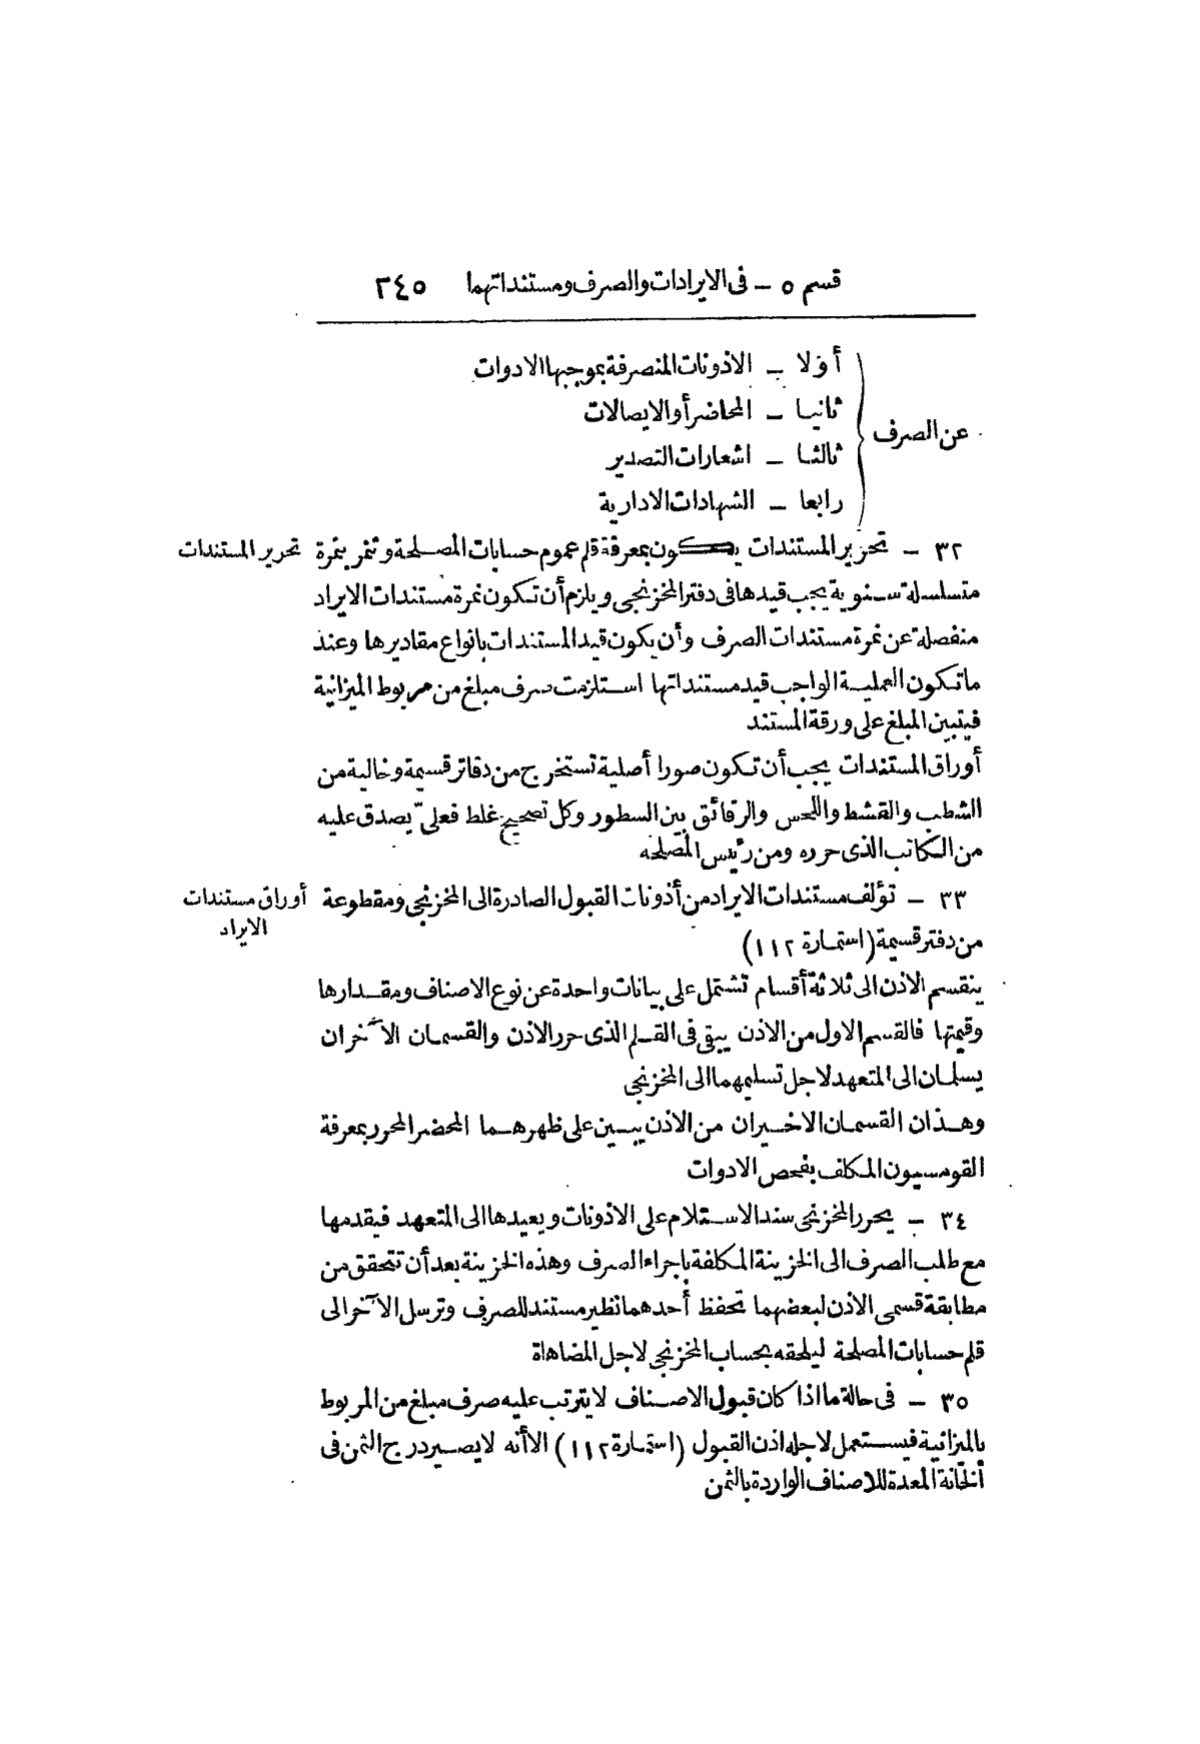 قسم ٥ – فى الايرادات والصرف ومستنداتهما ٢٤٥
أوّلا – الاذونات المنصرفة بموجبها الادوات
ثانيا – المحاضر أو الايصالات
عن الصرف
ثالثا – اشعارات التصدير
رابعا – الشهادات الادارية
٣٢ – تحرير المستندات يكون بمعرفة قلم عموم حسابات المصلحة وتنمر بنمرة
تحرير المستندات
متسلسلة سنوية يجب قيدها فى دفتر المخزنجى ويلزم أن تكون نمرة مستندات الايراد
منفصلة عن نمرة مستندات الصرف وأن يكون قيد المستندات بانواع مقاديرها وعند
ما تكون العملية الواجب قيد مستنداتها استلزمت صرف مبلغ من مربوط الميزانية
فيتبين المبلغ على ورقة المستند
أوراق المستندات يجب أن تكون صورا أصلية تستخرج من دفاتر قسيمة وخالية من
الشطب والقشط واللحس والرقائق بين السطور وكل تصحيح غلط فعلىّ يصدق عليه
من الكاتب الذى حرره ومن رئيس المصلحه
٣٣ – تؤلف مستندات الايراد من أذونات القبول الصادرة الى المخزنجى ومقطوعة
أوراق مستندات
الايراد
من دفتر قسيمة (استمارة ١١٢)
ينقسم الاذن الى ثلاثة أقسام تشتمل على بيانات واحدة عن نوع الاصناف ومقدارها
وقيمتها فالقسم الاول من الاذن يبقى فى القلم الذى حرر الاذن والقسمان الآخران
يسلمان الى المتعهد لاجل تسليمهما الى المخزنجى
وهذان القسمان الاخيران من الاذن يبين على ظهرهما المحضر المحرر بمعرفة
القومسيون المكلف بفحص الادوات
٣٤ – يحرر المخزنجى سند الاستلام على الاذونات ويعيدها الى المتعهد فيقدمها
مع طلب الصرف الى الخزينة المكلفة باجراء الصرف وهذه الخزينة بعد أن تتحقق من
مطابقة قسمى الاذن لبعضهما تحفظ أحدهما نظير مستند للصرف وترسل الآخر الى
قلم حسابات المصلحة ليلحقه بحساب المخزنجى لاجل المضاهاة
٣٥ – فى حالة ما اذا كان قبول الاصناف لا يترتب عليه صرف مبلغ من المربوط
بالميزانية فيستعمل لاجله اذن القبول (استمارة ١١٢) الا أنه لا يصير درج الثمن فى
الخانة المعدة للاصناف الواردة بالثمن